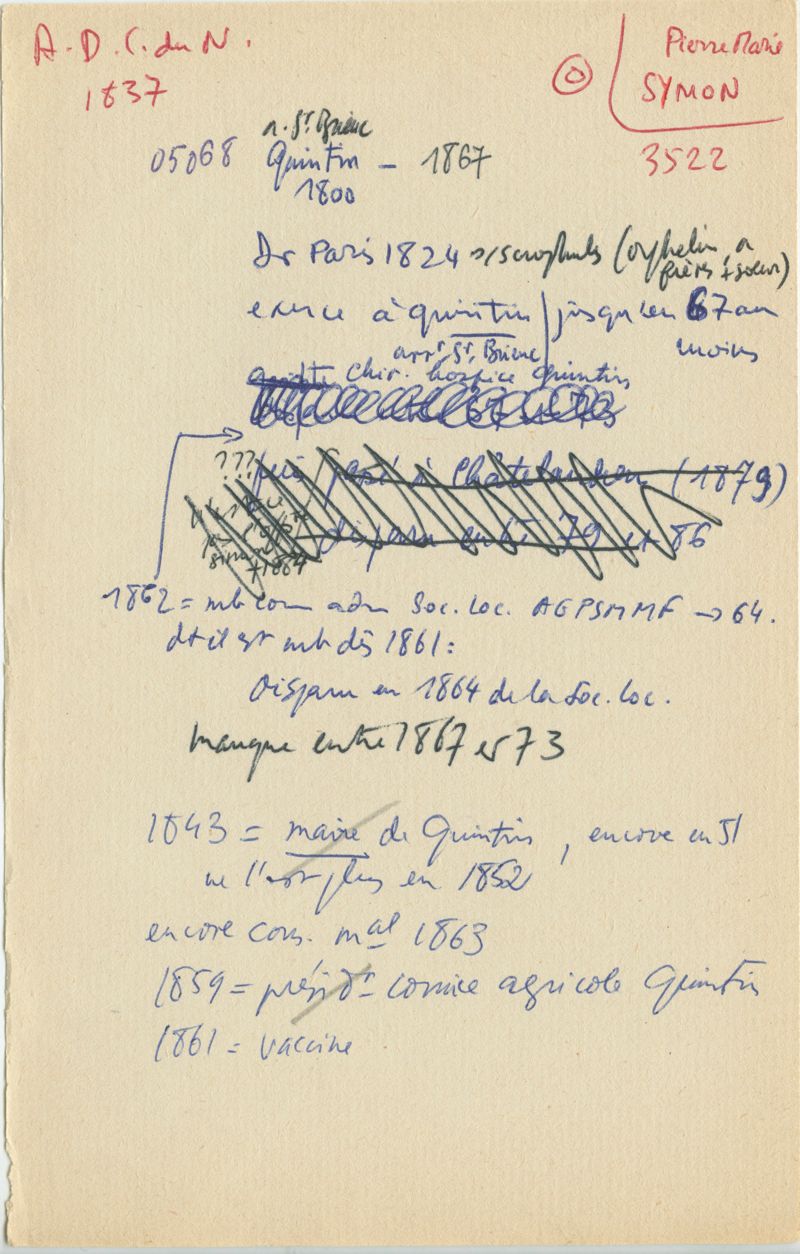 A.D.C. du N.
1837
Pierre Marie
SYMON
3522
n. St Brieuc
05068 Quintin – 1867
1800
Dr Paris 1824 s/scrophules (orphelin, a
frères + soeur)
exerce à Quintin / jusqu'en 67 au
moins
arrt St. Brieuc
chir. hospice Quintin
???
puis passé à Chatelaudren (1879)
disparu entre 79 et 86
+ 1884
1862 = mb com adm Soc. loc. AGPSMMF → 64.
dt il est mb dès 1861 :
disparu en 1864 de la Soc. loc.
manque entre 1867 et 73
1843 = maire de Quintin, encore en 51
ne l'est plus en 1852
encore cons. mal 1863
1859 = présidt comice agricole Quintin
1861 = vaccine